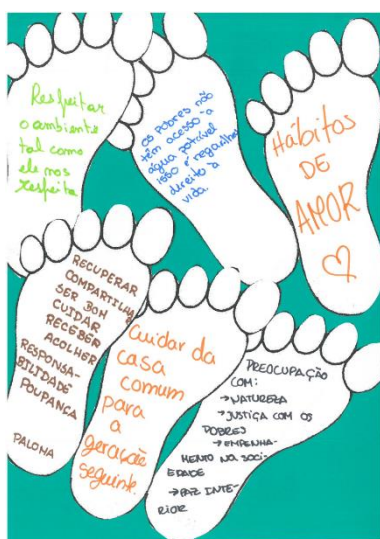 Respeitar
o ambiente
tal como
ele nos
respeita
os pobres não
têm acesso a
água potável
isso é
direito à
vida
Hábitos
DE
AMOR
RECUPERAR
COMPARTILHAR
SER BOM
CUIDAR
RECEBER
ACOLHER
RESPONSA-
BILIDADE
POUPANÇA
PALOMA
Cuidar da
casa
comum
para
a
geração
seguinte.
PREOCUPAÇÃO
COM:
→NATUREZA
→JUSTIÇA COM OS
POBRES
→EMPENHA-
MENTO NA SOCI-
EDADE
→PAZ INTE-
RIOR